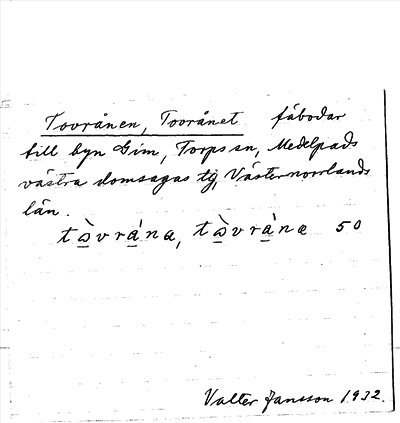 Tovrånen, Tovrånet fäbodar
till byn Gim, Torps sn, Medelpads
västra domsagas tg, Västernorrlands
län.
tòvrána, tòvránæ 50
Valter Jansson 1932.